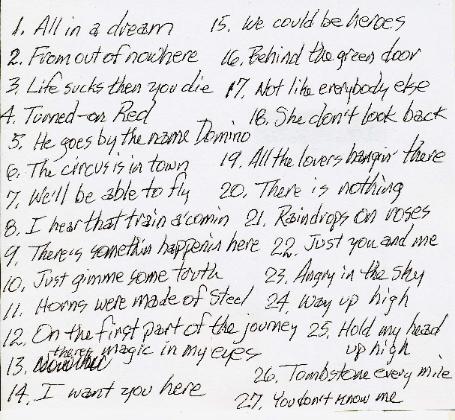 1. All in a dream
2. From out of nowhere
3. Life sucks then you die
4. Turned-on Red
5. He goes by the name Domino
6. The circus is in town
7. We'll be able to fly
8. I hear that train a'comin
9. There's somethin happenin here
10. Just gimme some truth
11. Horns were made of steel
12. On the first part of the journey
13. there's magic in my eyes
14. I want you here
15. We could be heroes
16. Behind the green door
17. Not like everybody else
18. She don't look back
19. All the lovers hangin' there
20. There is nothing
21. Raindrops on roses
22. Just you and me
23. Angry in the sky
24. Way up high
25. Hold my head
up high
26. Tombstone every mile
27. You don't know me